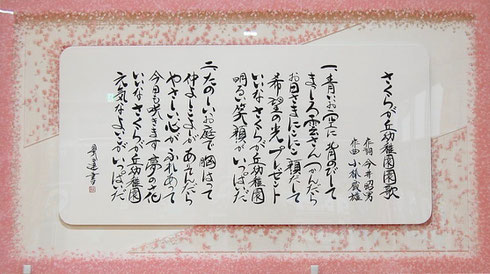 さくらが丘幼稚園園歌
作詞 今井昭男
作曲 小林威雄
一、青いお空に背のびして
まっしろ雲さんつかんだら
お日さまにこにこ顔だして
希望の光プレゼント
いいなさくらが丘幼稚園
明るい笑顔がいっぱいだ
二、たのしいお庭で胸はって
やさしい心がふれあって
今日も咲きます夢の花
いいなさくらが丘幼稚園